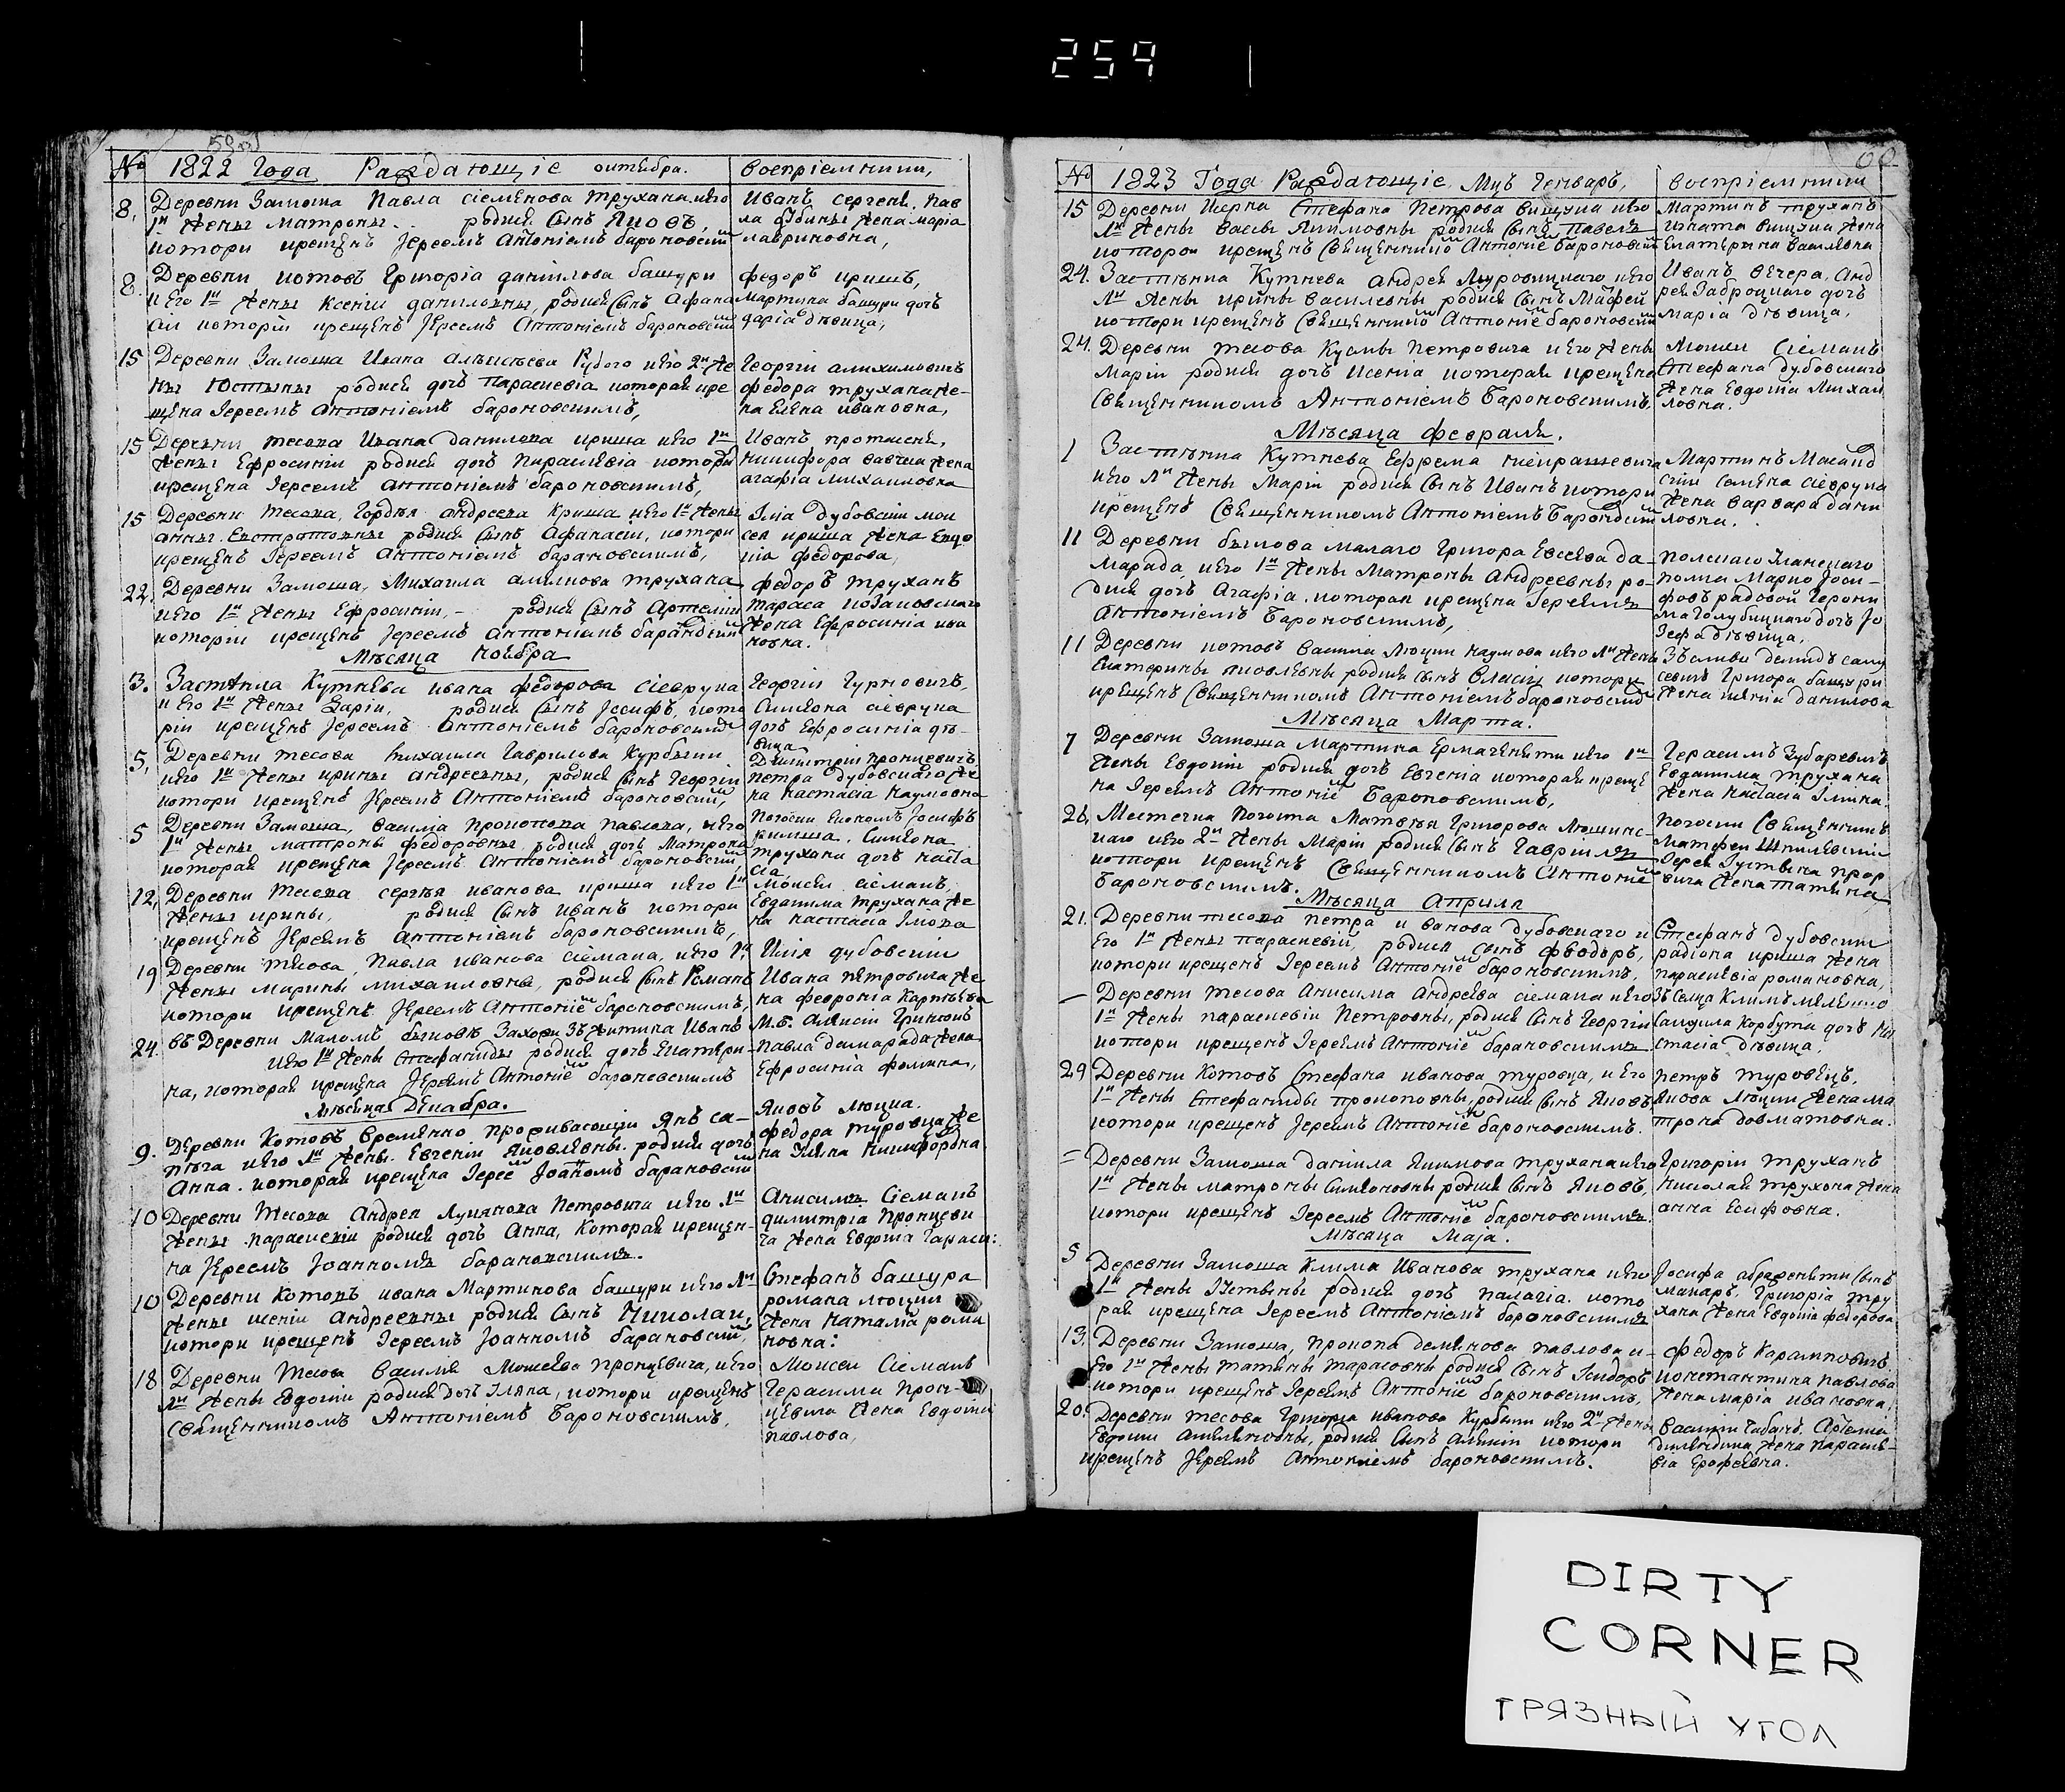 259
59об
№ 1822 Года Раждающіе октебра. воспріемники,
8, Деревни Замоша Павла сіеменова трухана, и его
1й жены матроны .. родися сынъ Яковъ,
которы крещенъ Іереемъ Антоніемъ бароновскимъ
Иванъ сергеня. Пав
жена маріа
лавриновна,
8. Деревни котовъ Григоріа даніилова башури
и его 1й жены Ксеніи даниловны, родися сынъ Афана
сіи которіи крещенъ Іереемъ Антоніемъ бароновскимъ
федоръ кришъ,
мартина башури дочь
даріа девица,
15 Деревни Замоша Ивана алексеева Рудого и его 2й же
ны Юстыны родися дочъ параскевіа котораи кре
щена Іереемъ антоніемъ бароновскимъ,
Георгіи
федора трухана же-
на елена ивановна,
15 Деревни тесова Ивана данилова криша и его 1й
жены Ефросиніи родися дочъ параскевіа котора
крещена Іереемъ антоніемъ бароновскимъ,
Иванъ протасеня,
никифора жена
агафіа михаиловна
15 Деревни тесова, Гордея андреева криша и его 1й жены
анны родися сынъ Афанасіи, котори
крещенъ Іереемъ Антоніемъ бароновскимъ,
Іліа дубовскіи мои
сея криша жена Евдо
кіа федорова,
22. Деревни Замоша, Михаила трухана
и его 1й жены Ефросиніи, - родися сынъ Артеміи
которіи крещенъ Іереемъ антоніемъ
федоръ труханъ
тараса козаковскаго
жена Ефросиніа ива
новна.
Месяца ноебра
3. Застенка Кутнева ивана федорова сіеврука
и его 1й жены Даріи, родися сынъ Іосифъ, кото
ріи крещенъ Іереемъ Антоніемъ бароновскимъ
Георгіи Гурновичъ,
Симеона сіеврука
дочъ Ефросиніа де-
вица
5, Деревни тесова михаила Гаврилова Курбыки
и его 1й жены ирины андреевны, родися сынъ Георгіи
котори крещенъ Іереемъ Антоніемъ бароновскимъ,
Димитріи пронцевичъ
петра дубовскаго же
на настасіа наумовна
5 Деревни Замоша, василіа прокопова павлова, и его
1й жены матроны федоровны родися дочъ Матрона
котораи крещена Іереемъ Антоніемъ бароновскимъ,
Погоски Економъ Іосифъ
Симеона
трухана дочъ наста
сіа
12, Деревни тесова сергея иванова криша и его 1й
жены ирины, родися сынъ иванъ котори
крещенъ Іереемъ Антоніемъ бароновскимъ,
моисеи сіеманъ,
Евдакима трухана же
на настасіа
19 Деревни тесова, Павла иванова сіемана, и его 1й
жены марины михаиловны, родися сынъ Романъ
котори крещенъ Іереемъ Антоніемъ бароновскимъ,
Иліа дубовскіи
Ивана петровича же
на февроніа
24. въ Деревни Маломъ быковъ Иванъ
и его 1й жены Стефаниды родися дочъ Екатери-
на, котораи крещена Іереемъ Антоніемъ бароновскимъ
М.Б. алексіи
Павла дамарада жена
Ефросиніа фомина,
Месеца Декабра.
9. Деревни Котовъ временно проживающіи Янъ са-
пега и его 1й жены. Евгеніи Яковлевны. родися дочъ
Анна. котораи крещена Іереемъ Іоанномъ барановскимъ
Яковъ люцка.
федора туровца же
на
10 Деревни тесова Андреи Лукянова Петровича и его 1й
жены параскевіи родися дочъ Анна, котораи крещен-
на Іереемъ Іоанномъ барановскимъ.
Анисимъ Сіеманъ
димитріа Пронцеви
ча жена Евдокіа
10 Деревни Котовъ ивана Мартинова башури и его 1й
жены ксеніи андреевны родися сынъ Николаи,
котори крещенъ Іереемъ Іоанномъ барановскимъ,
Стефанъ башура
романа люцки
жена наталіа рома
новна:
18 Деревни тесова Василіа Мошеева пронцевича, и его
1й жены Евдокіи родися дочъ Іляна, котори крещенъ
Священникомъ Антоніемъ Бароновскимъ,
Моисеи Сіеманъ
Герасима Прон-
цевича жена Евдокіи
павлова,
60.
№ 1823 Года Раждающіе. Мцъ Генваръ, воспріемники
15 Деревни Шерка Стефана Петрова вищука и его
1й жены Васы Якимовны родися сынъ павелъ
котороі крещенъ Священникомъ Антоніемъ бароновскимъ
Мартинъ труханъ
игната вищука жена
Екатерына
24. Застенка Кутнева андрея Муровицкаго и его
1й жены ирины василевны родися сынъ Матфей
котори крещенъ Священникомъ Антоніемъ бароновскимъ
Иванъ вечера, анд
рея Заброцкаго дочъ
маріа девица,
24. Деревни тесова Кузмы Петровича и его жены
Маріи родися дочъ ксеніа котораи крещена
Священникомъ Антоніемъ Бароновскимъ.
Мошеи Сіеманъ
Стефана дубовскаго
жена Евдокіа михаи
ловна.
Месяца февраля.
1 Застенка Кутнева Ефрема
и его 1й жены Маріи родися сынъ Иванъ котори
крещенъ Священникомъ Антоніемъ
Мартинъ
семена сіеврука
жена варвара дани
ловна.
11 Деревни быкова малаго Григора Евсеева да-
марада, и его 1й жены Матроны андреевны ро-
дися дочъ Агафіа. котораи крещена Іереемъ
Антоніемъ Бароновскимъ,
полскаго Уланскаго
полка Марко Іоси-
фовъ радовой Герони
ма Голубицкаго дочъ Іо
зефа девица,
11 Деревни котовъ василіа люцки наумова и его 1й жены
Екатерины яковлевны родися сынъ власіи котори
крещенъ Священникомъ Антоніемъ бароновскимъ
демидъ
Григора башури
жена ксеніа данилова
Месяца Марта.
7 Деревни Замоша Мартина Ермаченети и его 1й
жены Евдокіи родися дочъ Евгеніа котораи креще
на Іереемъ Антоніемъ Бароновскимъ,
Герасимъ Зубаревичъ
Евдакима трухана
жена настасіа Ілина
26, Местечка Погоста Матвея Григорова
и его 2й жены Маріи родися сынъ Гаврилъ
котори крещенъ Священникомъ Антоніемъ
Бароновскимъ.
погоски Священникъ
Матфеи Шпилевскіи
жена татіяна
Месяца Априля
21. Деревни тесова петра иванова дубовскаго и
его 1й жены параскевіи, родися сынъ феодоръ,
котори крещенъ Іереемъ Антоніемъ бароновскимъ,
Стефанъ дубовскіи
радіона криша жена
параскевіа романовна,
— Деревни тесова Анисима Андреева сіемана и его
1й жены параскевіи Петровны, родися сынъ Георгіи
котори крещенъ Іереемъ Антоніемъ бароновскимъ
Климъ
Самуила Корбута дочъ на
стасіа девица,
29 Деревни Котовъ Стефана иванова туровца, и его
1й жены Стефаниды прокоповны, родися сынъ Яковъ
котори крещенъ Іереемъ Антоніемъ бароновскимъ.
петръ туровецъ,
Якова люцки жена ма
трона довматовна.
= Деревни Замоша даніила Якимова трухана и его
1й жены матроны Симеоновны родися сынъ Яковъ,
котори крещенъ Іереемъ Антоніемъ бароновскимъ.
Григоріи труханъ
николая трухона жена
анна Есифовна.
Месяца Маја.
5 Деревни Замоша Клима Иванова трухана и его
1й жены Устины родися дочъ палагіа. кото
раи крещена Іереемъ Антоніемъ бароновскимъ
Іосифа сынъ
макаръ, Григоріа тру
хана жена Евдокіа федорова
13. Деревни Замоша, прокопа демянова павлова и-
его 1й жены татяны тарасовны родися сынъ Ісидоръ
котори крещенъ Іереемъ Антоніемъ бароновскимъ,
федоръ
константина павлова
жена маріа ивановна,
20. Деревни тесова Григоріа иванова Курбыки и его 2й жены
Евдокіи родися сынъ алексіи котори
крещенъ Іереемъ Антоніемъ бароновскимъ.
василіи
жена параске-
віа Ерофеевна.
DIRTY
CORNER
ГРЯЗНЫЙ УГОЛ